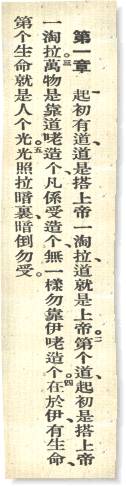 第一章 一起初有道、道是搭上帝一淘拉、道就是上帝。二第个道、起初是搭上帝
一淘拉。三萬物是靠道咾造个、凡係受造个、無一樣勿靠伊咾造个。四在於伊有生命、
第个生命就是人个光。五光照拉暗裏、暗倒勿受。